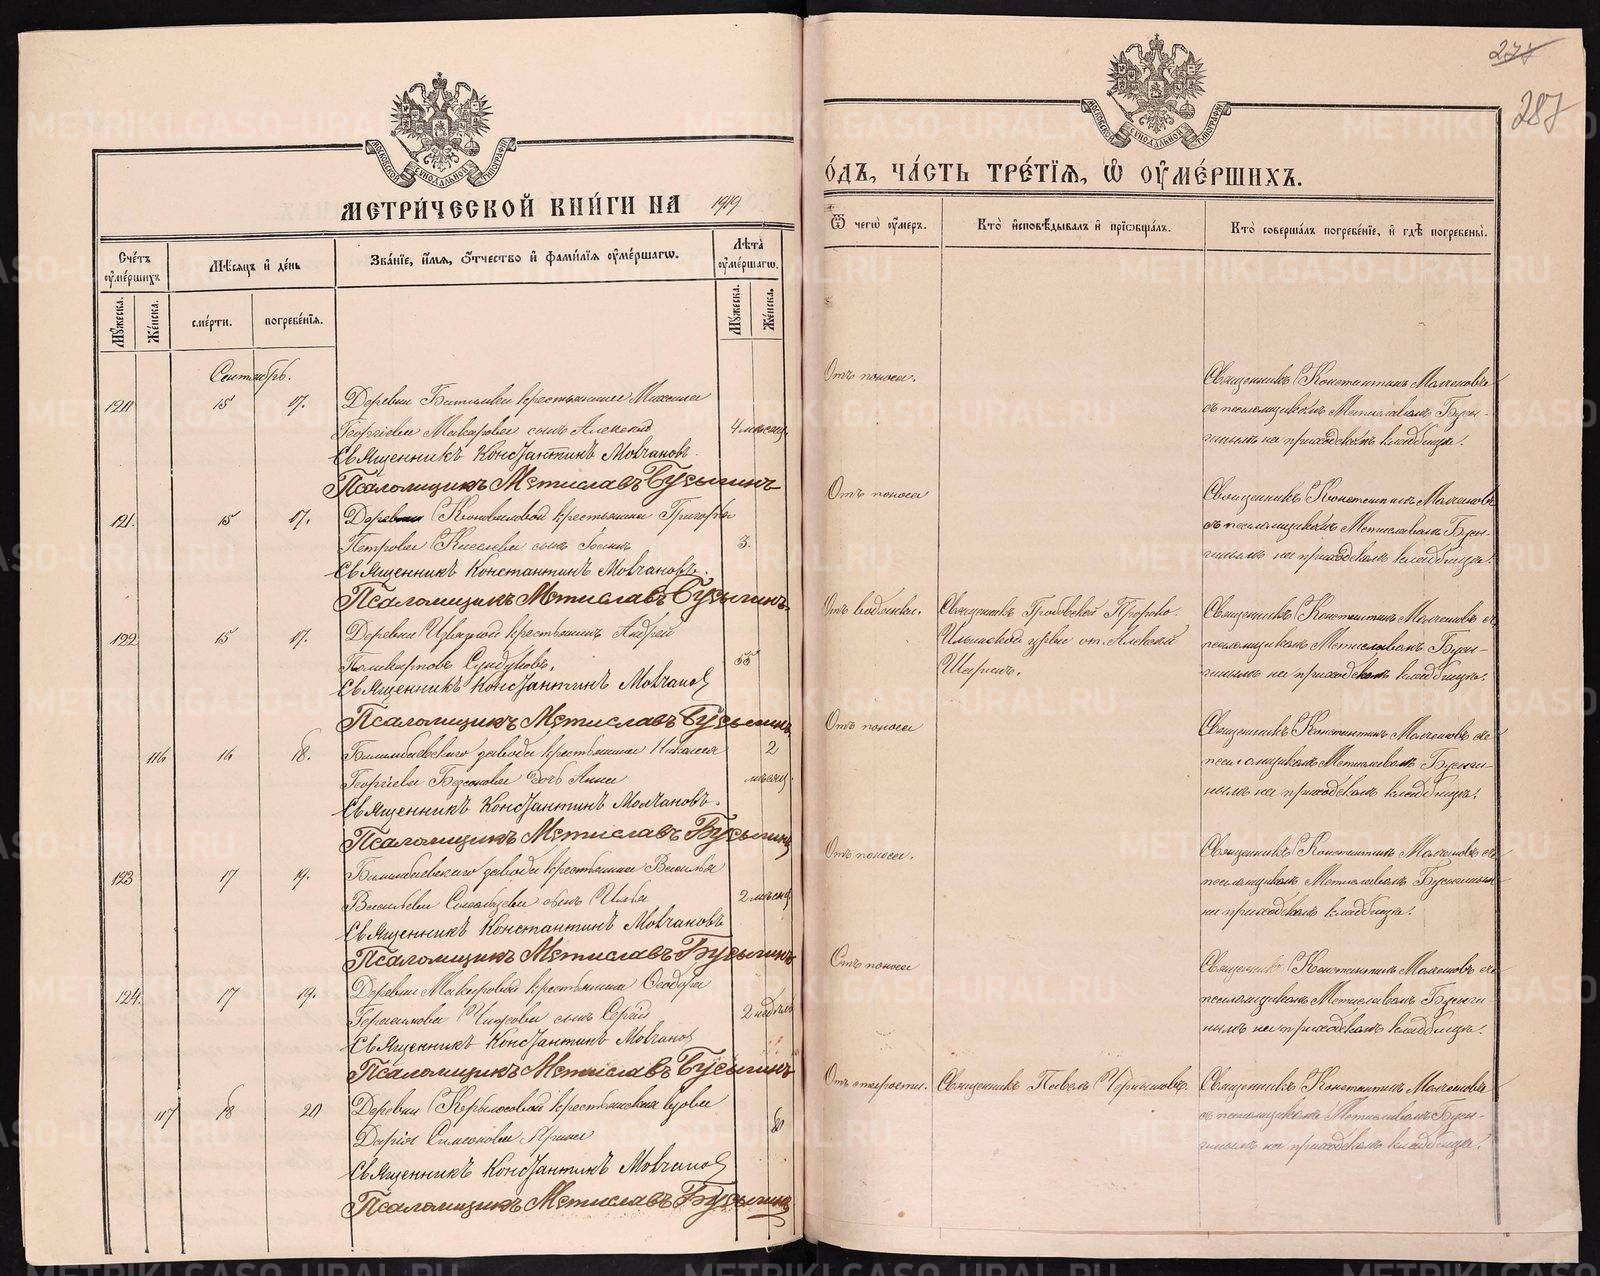 274
287
МЕТРИ́ЧЕСКОЙ КНИ́ГИ НА 1919
О́ДЪ, ЧА́СТЬ ТРЕ́ТІЯ, Ѡ҆ ОУ҆МЕ́РШИХЪ.
Сче́тъ оу҆ме́ршихъ.
Мѣ́сяцъ и҆ де́нь
Зва́нїе, и҆́мя, ѻ҆́тчество и҆ фами́лїя оу҆ме́ршагѡ.
Лѣ́та оу҆ме́ршагѡ.
Ѿ чегѡ̀ оу҆́меръ.
Кто̀ и҆сповѣ́дывалъ и҆ прїѡбща́лъ.
Кто̀ соверша́лъ погребе́нїе, и҆ гдѣ̀ погребены̀.
Мꙋ́жеска.
Же́нска.
сме́рти.
погребе́нїѧ.
Мꙋ́жеска.
Же́нска.
Сентябрь.
120 15 17. Деревни Битимки крестьянина Михаила
Георгіева Макарова сынъ Алексій 4 мѣсяц.
Священникъ Константинъ Молчановъ.
Псаломщикъ Мстиславъ Бусыгинъ
Отъ поноса.
Священникъ Константинъ Молчановъ
съ псаломщикомъ Мстиславомъ Бусы-
гинымъ на приходскомъ кладбищѣ.
121. 15 17. Деревни Коноваловой крестьянина Григорія
Петрова Киселева сынъ 3.
Священникъ Константинъ Молчановъ.
Псаломщикъ Мстиславъ Бусыгинъ.
Отъ поноса
Священникъ Константинъ Молчановъ
съ псаломщикомъ Мстиславомъ Бусы-
гинымъ на приходскомъ кладбищѣ.
122 15 17. Деревни Извѣздной крестьянинъ Андрей
Поликарповъ Сундуковъ. 55
Священникъ Константинъ Молчановъ
Псаломщикъ Мстиславъ Бусыгинъ.
Отъ водянки.
Священникъ Гробовской Пророко-
Ильинской церкви от. Алексій
Шаринъ.
Священникъ Константинъ Молчановъ съ
псаломщикомъ Мстиславомъ Бусы-
гинымъ на приходскомъ кладбищѣ.
116 16 18. Билимбаевскаго завода крестьянина Николая 2
Георгіева дочь Анна мѣсяц.
Священникъ Константинъ Молчановъ.
Псаломщикъ Мстиславъ Бусыгинъ
Отъ поноса
Священникъ Константинъ Молчановъ съ
псаломщикомъ Мстиславомъ Бусыги-
нымъ на приходскомъ кладбищѣ.
123 17 19. Билимбаевскаго завода крестьянина Василія
Васильева сынъ Илья 2 мѣсяц
Священникъ Константинъ Молчановъ
Псаломщикъ Мстиславъ Бусыгинъ
Отъ поноса.
Священникъ Константинъ Молчановъ съ
псаломщикомъ Мстиславомъ Бусыгинымъ
на приходскомъ кладбищѣ.
124. 17 19. Деревни Макаровой крестьянина Ѳеодора
Герасимова Чижова сынъ Сергій 2 недѣль
Священникъ Константинъ Молчановъ
Псаломщикъ Мстиславъ Бусыгинъ
Отъ поноса
Священникъ Константинъ Молчановъ съ
псаломщикомъ Мстиславомъ Бусыги-
нымъ на приходскомъ кладбищѣ.
117 18 20 Деревни крестьянская вдова
Дарія Симеонова 80
Священникъ Константинъ Молчановъ
Псаломщикъ Мстиславъ Бусыгинъ
Отъ старости.
Священникъ Павелъ Чернышовъ.
Священникъ Константинъ Молчановъ
съ псаломщикомъ Мстиславомъ Бусы-
гинымъ на приходскомъ кладбищѣ.